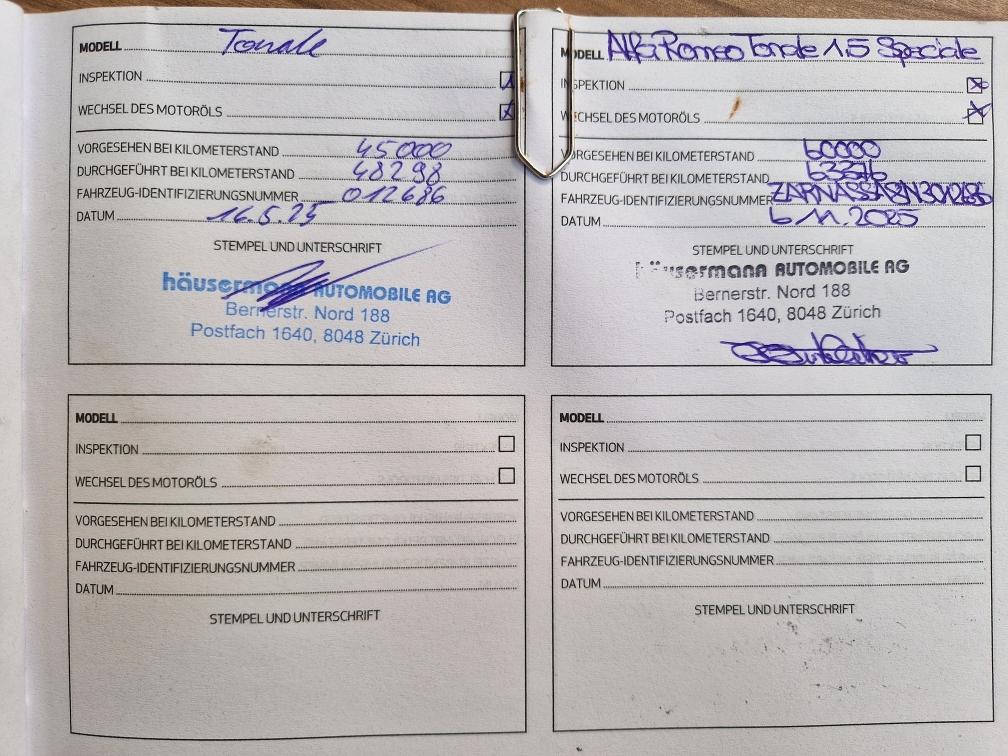 MODELL Tonale
INSPEKTION
WECHSEL DES MOTORÖLS
VORGESEHEN BEI KILOMETERSTAND 45000
DURCHGEFÜHRT BEI KILOMETERSTAND 48298
FAHRZEUG-IDENTIFIZIERUNGSNUMMER 012686
DATUM 16.5.25
STEMPEL UND UNTERSCHRIFT
häusermann AUTOMOBILE AG
Bernerstr. Nord 188
Postfach 1640, 8048 Zürich
MODELL Alfa Romeo Tonale 1.5 Speciale
INSPEKTION
WECHSEL DES MOTORÖLS
VORGESEHEN BEI KILOMETERSTAND 60000
DURCHGEFÜHRT BEI KILOMETERSTAND
FAHRZEUG-IDENTIFIZIERUNGSNUMMER
DATUM 6.11.2025
STEMPEL UND UNTERSCHRIFT
häusermann AUTOMOBILE AG
Bernerstr. Nord 188
Postfach 1640, 8048 Zürich
MODELL
INSPEKTION
WECHSEL DES MOTORÖLS
VORGESEHEN BEI KILOMETERSTAND
DURCHGEFÜHRT BEI KILOMETERSTAND
FAHRZEUG-IDENTIFIZIERUNGSNUMMER
DATUM
STEMPEL UND UNTERSCHRIFT
MODELL
INSPEKTION
WECHSEL DES MOTORÖLS
VORGESEHEN BEI KILOMETERSTAND
DURCHGEFÜHRT BEI KILOMETERSTAND
FAHRZEUG-IDENTIFIZIERUNGSNUMMER
DATUM
STEMPEL UND UNTERSCHRIFT